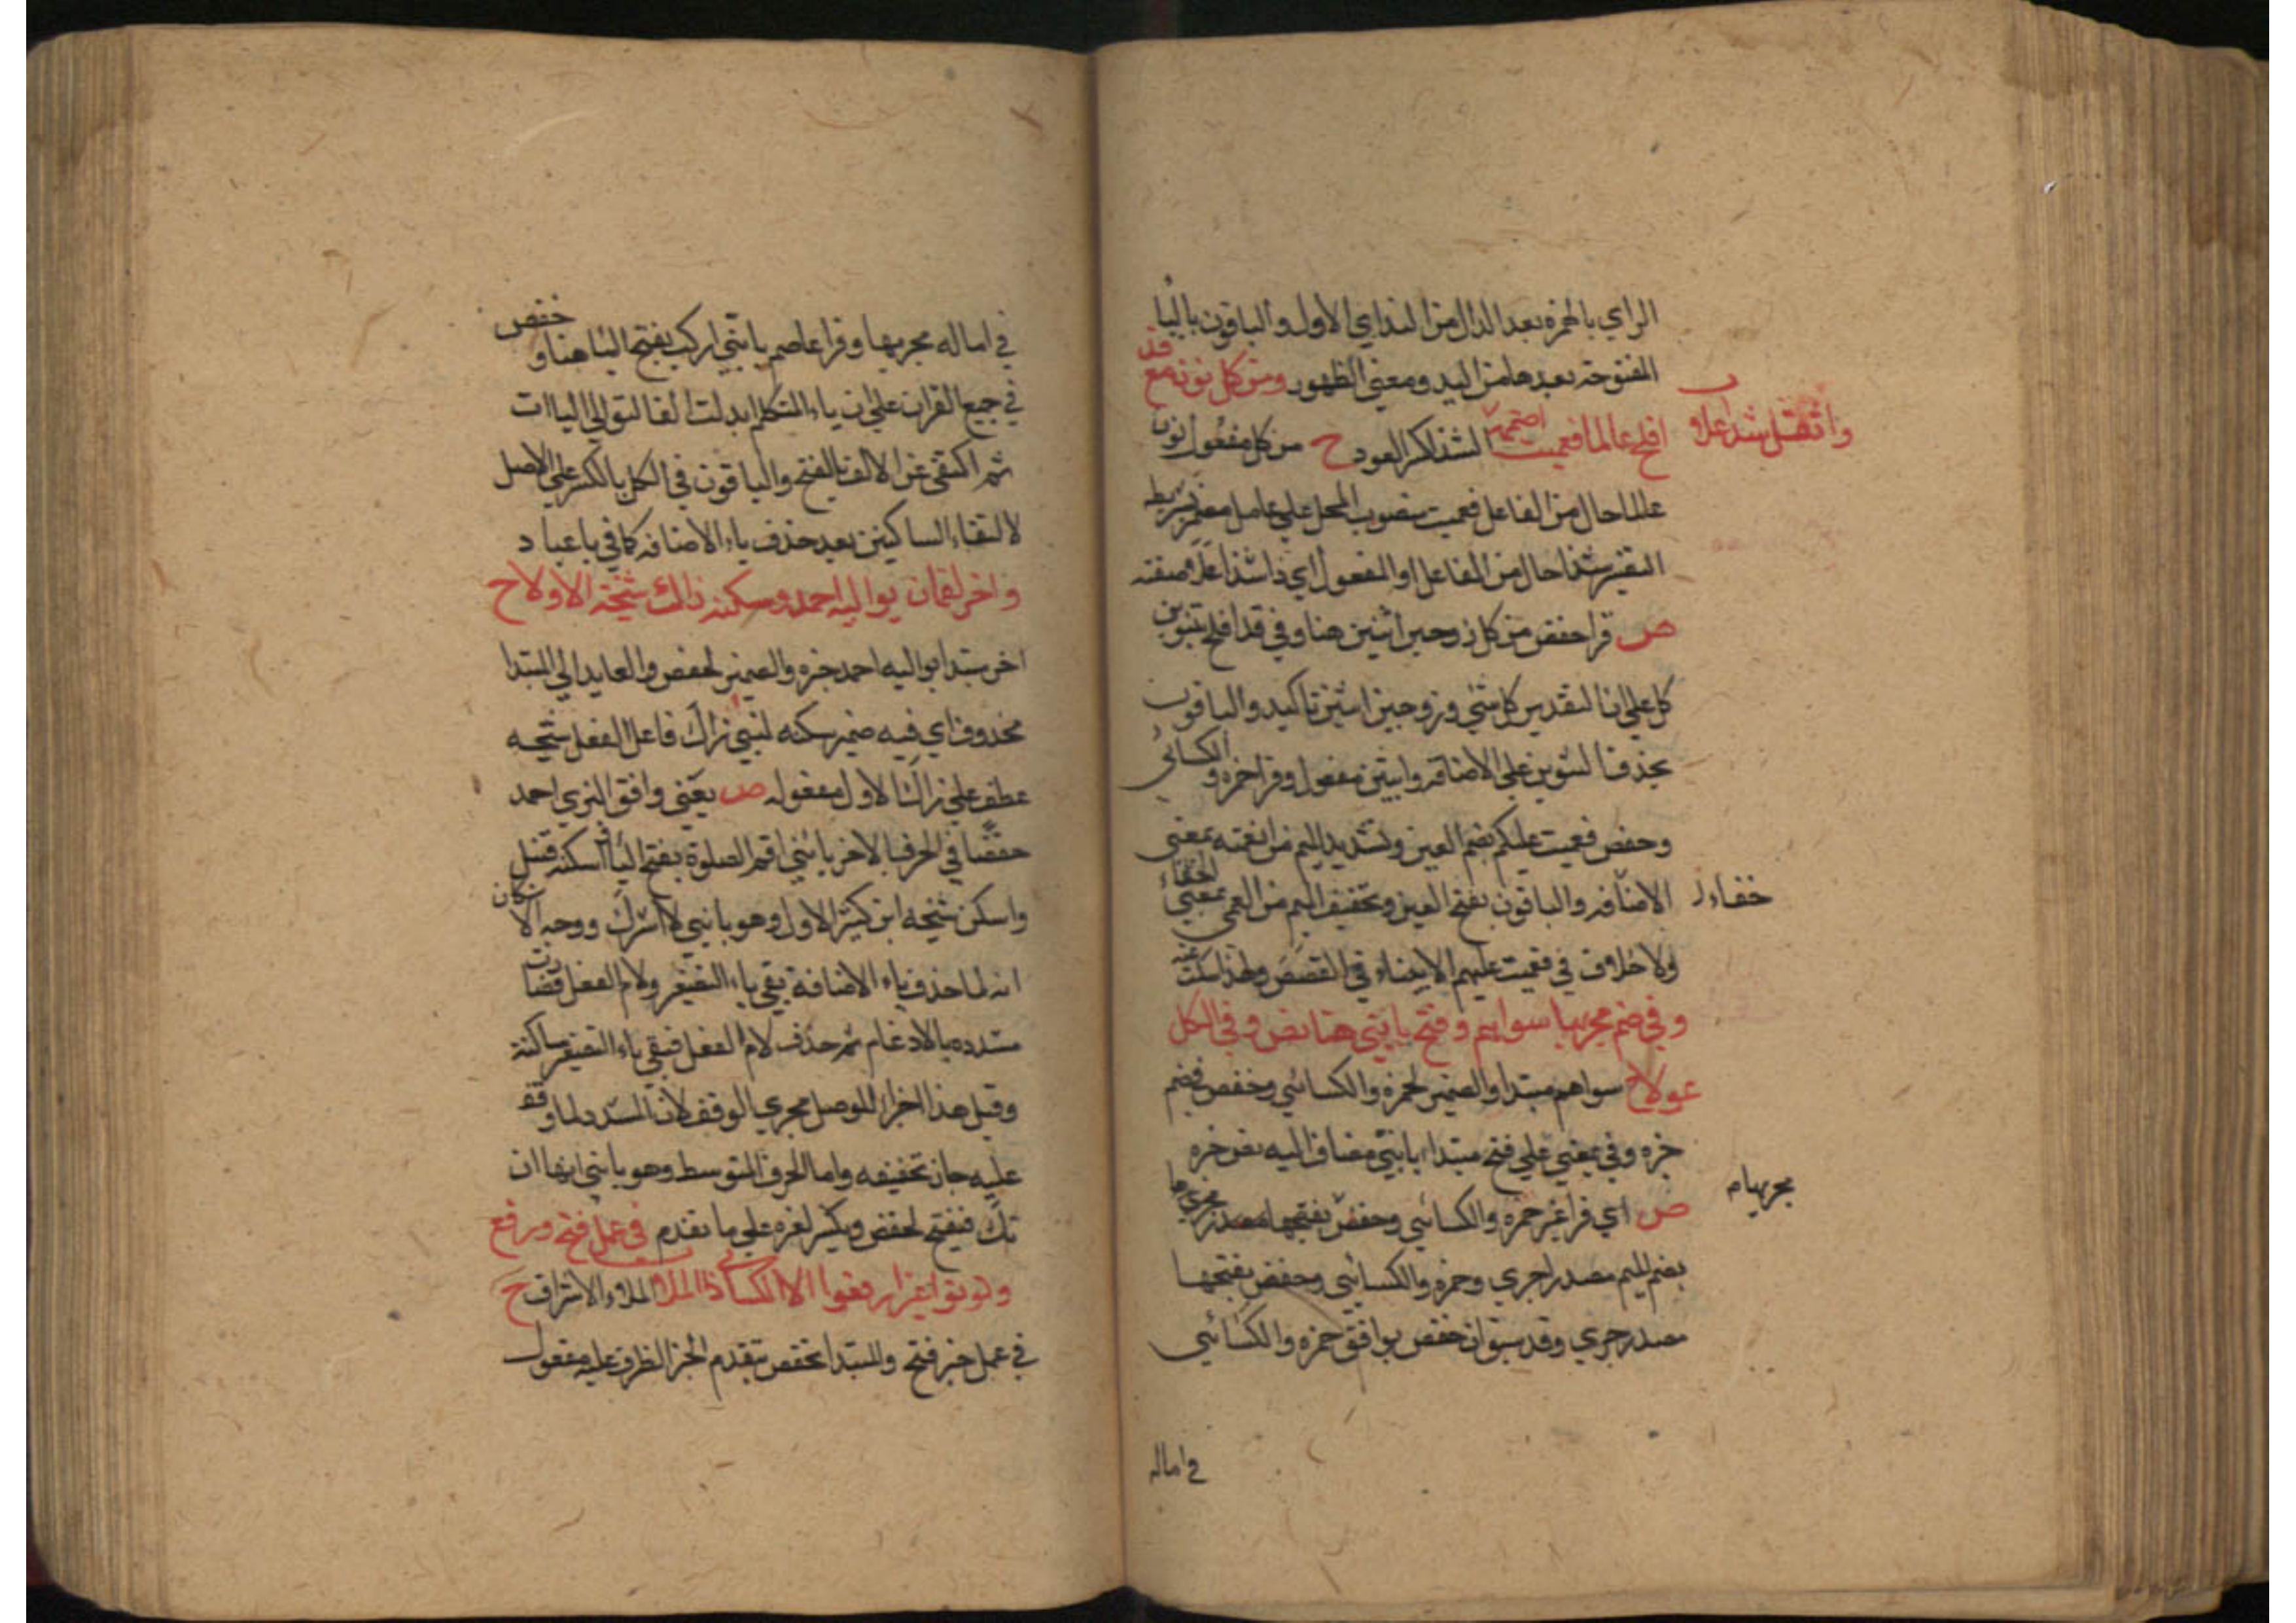 الراي بالهمزة بعد الدال من البداي الاول والباقون باليا
المفتوحة بعدها من البدو ومعنى الظهور ومن كل نون مع قد
افلح عالما فعميت اضممه وثقل شذا علا الشذا كسر العود ح من كل مفعول نون
عالما حال من الفاعل فعميت منصوب المحل على عامل مضمر
التفسير شذا حال من الفاعل او المفعول اي ذا شذا علا صفته
ص قرا حفص من كل زوجين اثنين هنا وفي قد افلح بتنوين
كل على ان التقدير كل شي وزوجين اثنين تاكيد والباقون
بحذف التنوين على الاضافة واثنين مفعول وقرا حمزة والكسائي
وحفص فعميت عليكم بضم العين وتشديد الميم من
الاضافه والباقون بفتح العين وتخفيف الميم من العمى بمعنى
خفاء
ولا خلاف في فعميت عليهم الانباء في القصص ولهذا سكت عنه
وفي ضم مجريها سواهم وفتح يا بني هنا نص وفي الكل
عولا ح سواهم مبتدا والضمير لحمزة والكسائي وحفص فضم
خبره وفي بمعنى على فتح مبتدا يا بني مضاف اليه نص خبره
ص اي قرا غير حمزة والكسائي وحفص مجريها
مجريها م
بضم الميم مصدر اجري وحمزة والكسائي وحفص بفتحها
مصدر جري وقد سبق ان حفص يوافق حمزة والكسائي
في اماله
في اماله مجريها وقرا عاصم يا بني اركب بفتح اليا هنا وحفص
في جميع القران على ان ياء المتكلم ابدلت الفا لتوالي الياات
ثم اكتفي عن الالف بالفتح والباقون في الكل بالكسر على الاصل
لالتقاء الساكنين بعد حذف ياء الاضافه كما في يا عباد
واخر لقمان يواليه احمد وسكنه زاك شيخه الاولا ح
اخر مبتدا يواليه احمد خبره والضمير لحفص والعايد الى المبتدا
محذوف اي فيه ضمير سكنه لبني زاك فاعل الفعل شيخه
عطف على زاك الاول مفعوله ص يعني وافق البزي احمد
حفصا في الحرف الاخر يا بني اقم الصلوة بفتح اليا واسكنه قنبل
واسكن شيخه ابن كثير الاول وهو يا بني لا تشرك ووجه الاسكان
انه لما حذف ياء الاضافة بقي ياء التصغير ولام الفعل فصارت
مشدده بالادغام ثم حذف لام الفعل فبقي ياء التصغير ساكنة
وقيل هذا اجراء للوصل مجري الوقف لان المشدد لما وقف
عليه جاز تخفيفه واما الحرف المتوسط وهو يا بني انها ان
تك فيفتح لحفص ويكسر لغيره على ما تقدم في عمل فتح ورفع
ونونوا وغير ارفعوا الا الكسائي ذا الملا الملاء الاشراف ح
في عمل خبر فتح والمبتدا تخصص بتقدم الخبر الظرف عليه مفعول